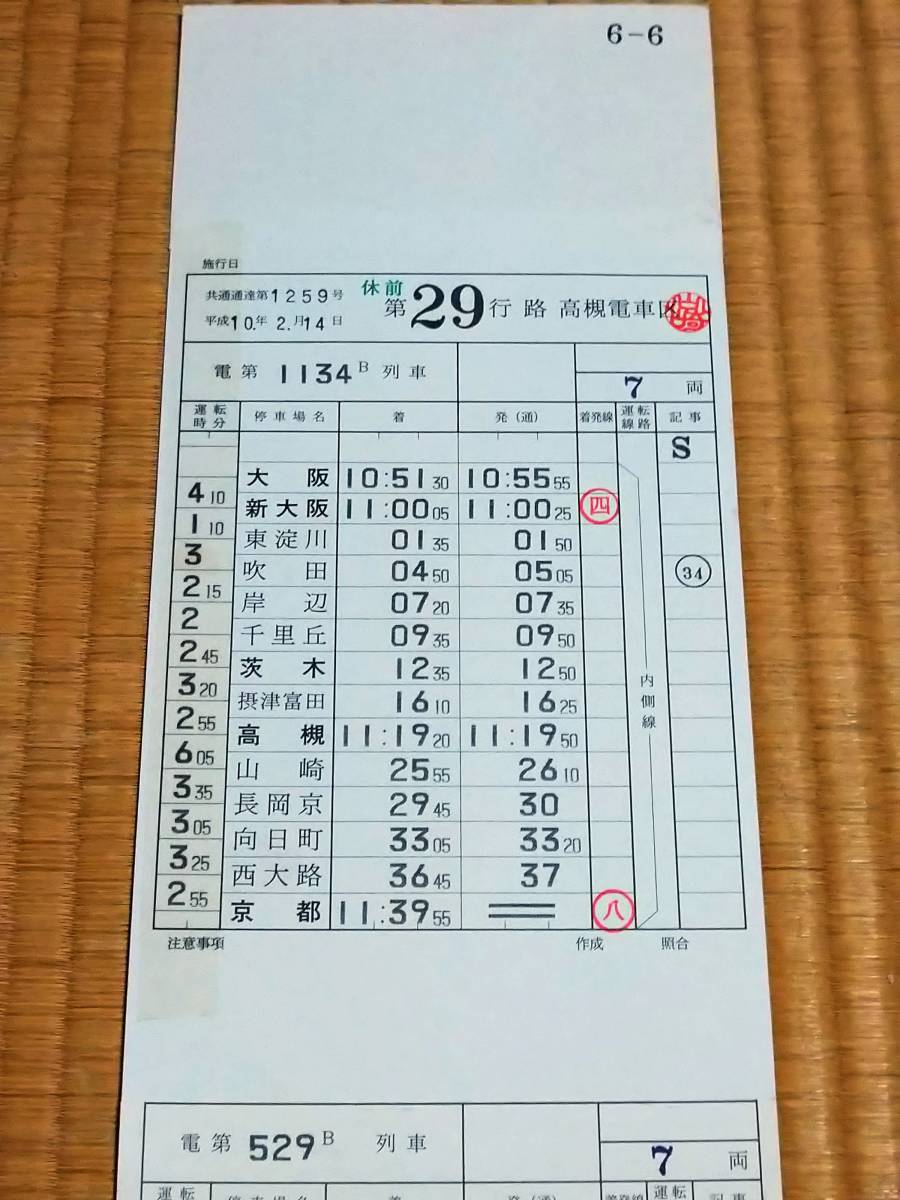 6-6
施行日
共通通達第1259号 休前 第29行路 高槻電車区
平成10年2.月14日
電第1134B列車 7両
運転時分 停車場名 着 発(通) 着発線 運転線路 記事
S
大阪 10:51 30 10:55 55
4 10
新大阪 11:00 05 11:00 25 四
1 10
東淀川 01 35 01 50
3
吹田 04 50 05 05 34
2 15
岸辺 07 20 07 35
2
千里丘 09 35 09 50
2 45
茨木 12 35 12 50
3 20
摂津富田 16 10 16 25
内側線
2 55
高槻 11:19 20 11:19 50
6 05
山崎 25 55 26 10
3 35
長岡京 29 45 30
3 05
向日町 33 05 33 20
3 25
西大路 36 45 37
2 55
京都 11:39 55 八
注意事項 作成 照合
電第529B列車 7両
運転 停車場名 着 発(通) 着発線 運転 記事